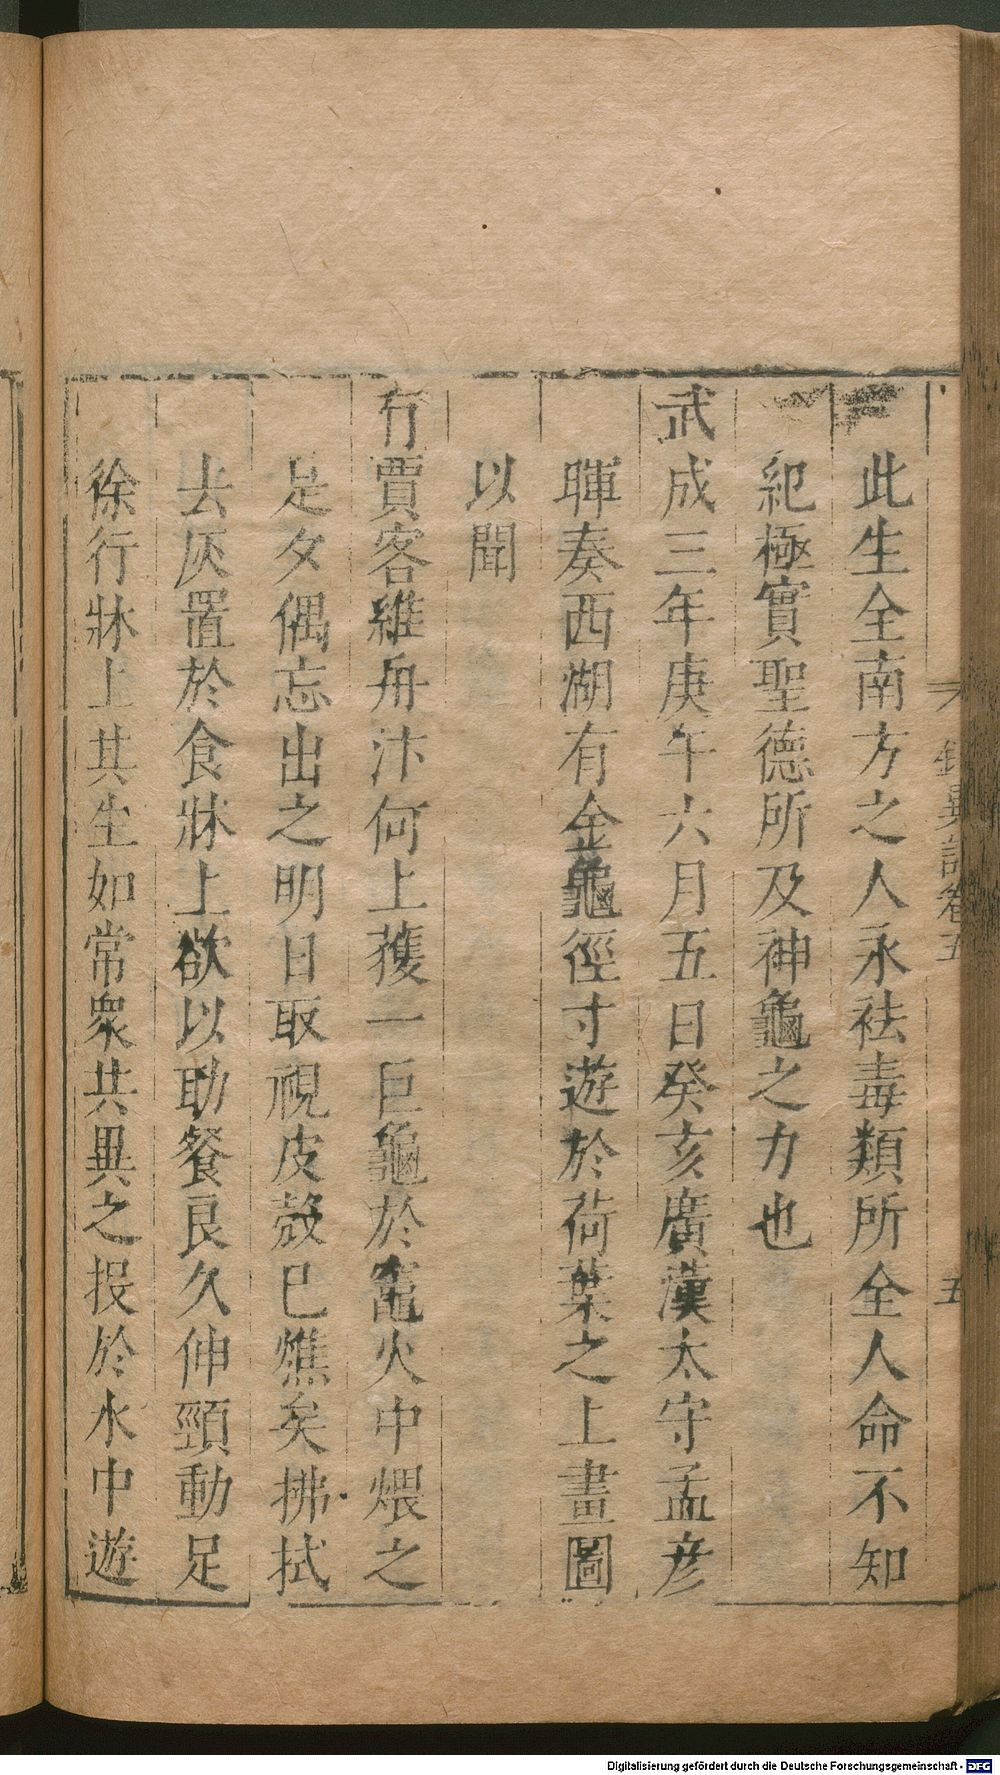 此生全南方之人永袪毒類所全人命不知
紀極實聖德所及神龜之力也
武成三年庚午六月五日癸亥廣漢太守孟彦
暉奏西湖有金龜徑寸遊於荷葉之上畫圖
以聞
有賈客維舟汴河上獲一巨龜於竈火中煨之
是夕偶忘出之明日取視皮殼已燋矣拂拭
去灰置於食牀上欲以助餐良久伸頸動足
徐行牀上其生如常衆共異之投於水中遊
錄異記卷五
五
Digitalisierung gefördert durch die Deutsche Forschungsgemeinschaft - DFG